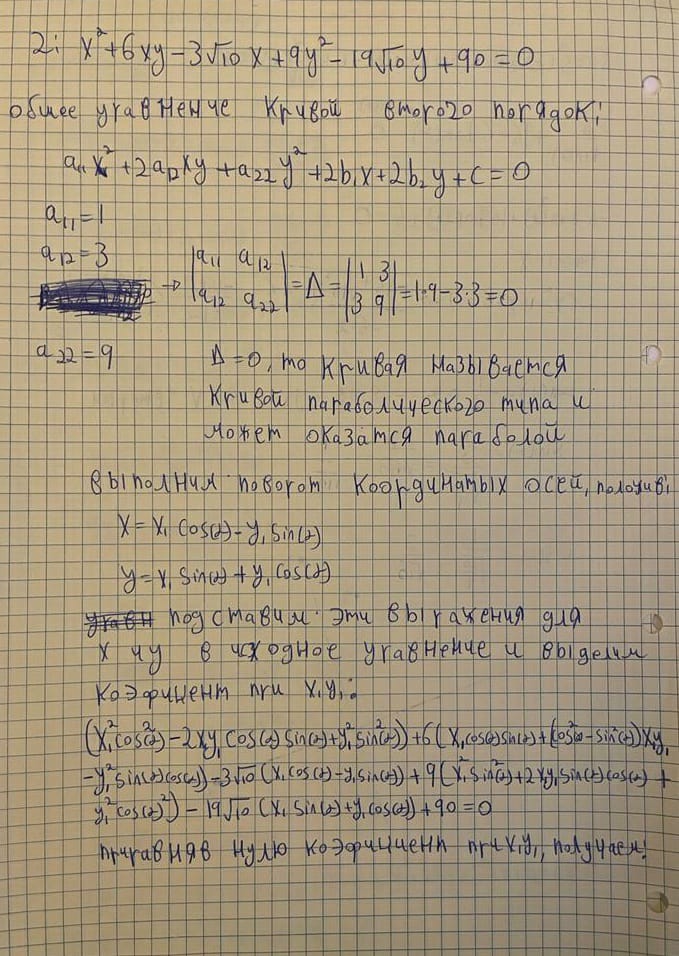 2: x²+6xy-3√10 x+9y²-19√10 y+90=0
общее уравненче кривой второго порядок:
a₁₁x²+2a₁₂xy+a₂₂y²+2b₁x+2b₂y+c=0
a₁₁=1
a₁₂=3
→ |a₁₁ a₁₂; a₁₂ a₂₂| = Δ = |1 3; 3 9| = 1·9-3·3=0
a₂₂=9 Δ=0, то кривая называется
кривой параболического типа и
может оказатся параболой
выполним поворот координатых осей, положив:
x=x₁cos(α)-y₁sin(α)
y=x₁sin(α)+y₁cos(α)
подставим эти выражения для
x и y в исходное уравненче и выделим
коэфицент при x₁y₁:
(x₁²cos²(α)-2x₁y₁cos(α)sin(α)+y₁²sin²(α))+6(x₁cos(α)sin(α)+(cos²(α)-sin²(α))x₁y₁
-y₁²sin(α)cos(α))-3√10(x₁cos(α)-y₁sin(α))+9(x₁²sin²(α)+2x₁y₁sin(α)cos(α)+
y₁²cos(α)²)-19√10(x₁sin(α)+y₁cos(α))+90=0
приравняв нулю коэфициент при x₁y₁, получаем: